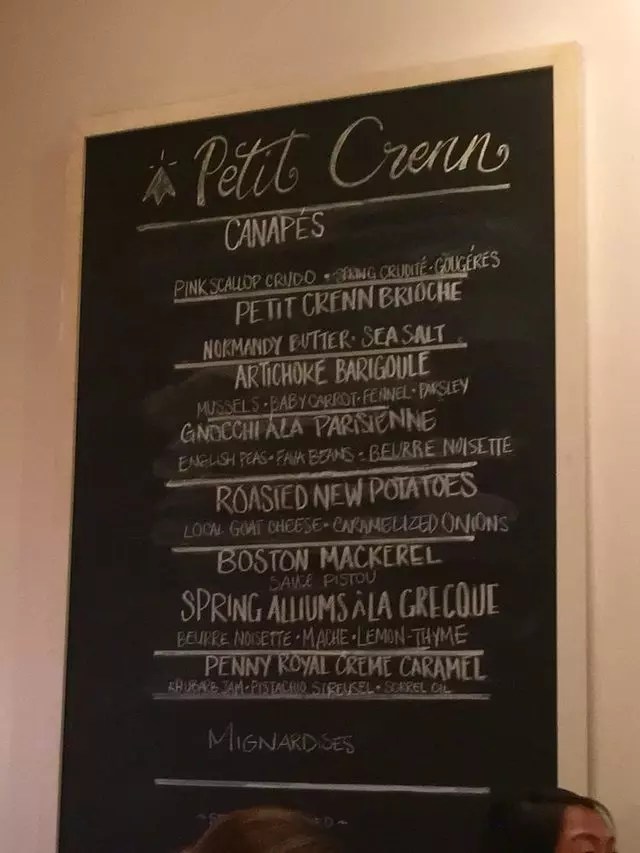 Petit Crenn
CANAPÉS
PINK SCALLOP CRUDO • SPRING CRUDITÉ • GOUGÉRES
PETIT CRENN BRIOCHE
NORMANDY BUTTER • SEA SALT
ARTICHOKE BARIGOULE
MUSSELS • BABY CARROT • FENNEL • PARSLEY
GNOCCHI À LA PARISIENNE
ENGLISH PEAS • FAVA BEANS • BEURRE NOISETTE
ROASTED NEW POTATOES
LOCAL GOAT CHEESE • CARAMELIZED ONIONS
BOSTON MACKEREL
SAUCE PISTOU
SPRING ALLIUMS À LA GRECQUE
BEURRE NOISETTE • MACHE • LEMON-THYME
PENNY ROYAL CREME CARAMEL
RHUBARB JAM • PISTACHIO STREUSEL • SORREL OIL
MIGNARDISES